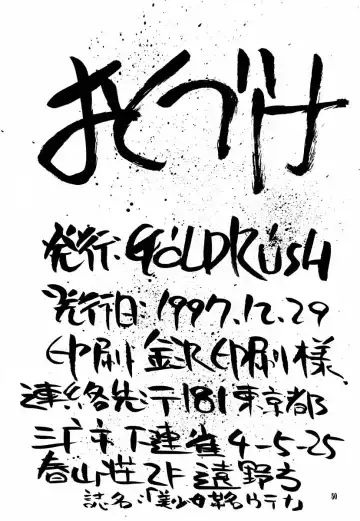 おくづけ
発行:GOLDRUSH
発行日:1997.12.29
印刷 金沢印刷様
連絡先 〒181 東京都
三鷹市下連雀4-5-25
春山荘2F 遠野方
誌名:「美少女革命ウテナ」
50